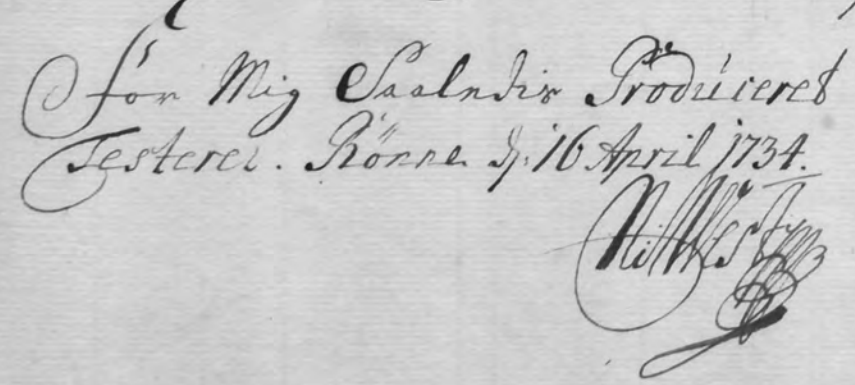 for Mig Saaledis Producered
Testerer. Rönne d. 16 April 1734.
West